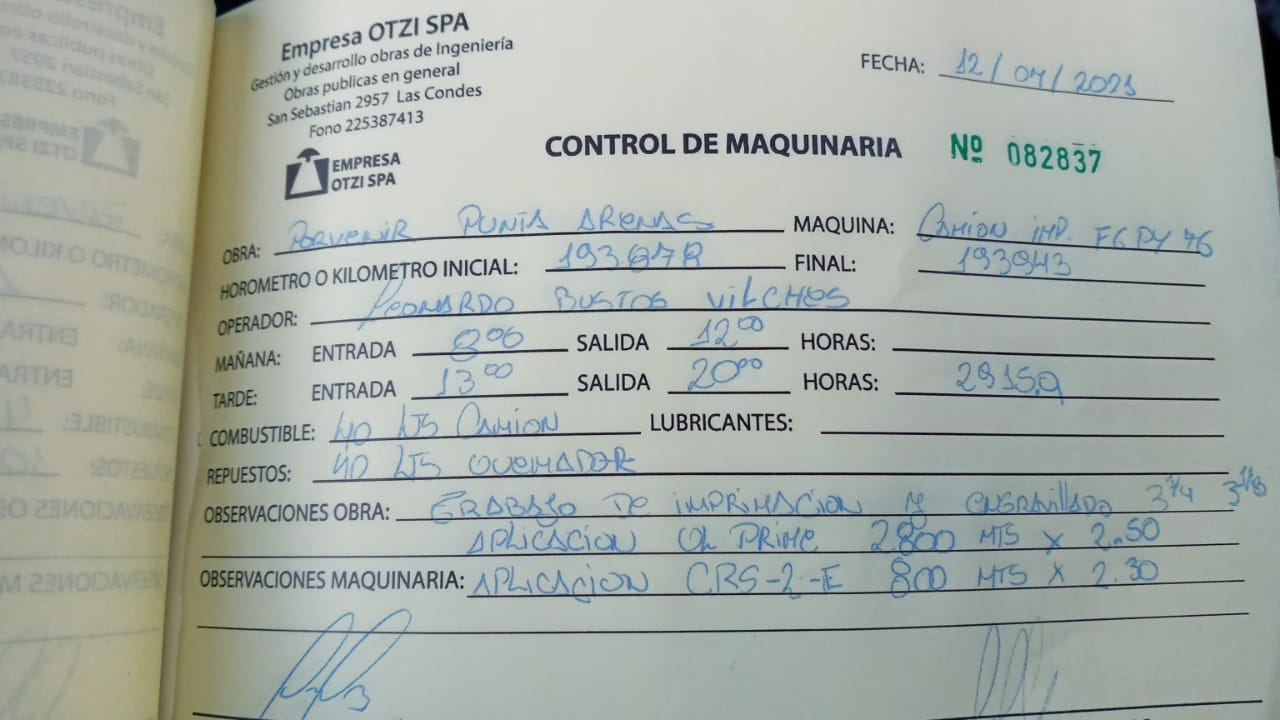 Empresa OTZI SPA
Gestión y desarrollo obras de Ingeniería
Obras publicas en general
San Sebastian 2957 Las Condes
Fono 225387413
EMPRESA
OTZI SPA
FECHA: 12/04/2021
CONTROL DE MAQUINARIA Nº 082837
OBRA: PORVENIR PUNTA ARENAS MAQUINA: CAMION IMP. FGPY 76
HOROMETRO O KILOMETRO INICIAL: FINAL: 193943
OPERADOR: LEONARDO BUSTOS VILCHES
MAÑANA: ENTRADA 8 00 SALIDA 12 00 HORAS:
TARDE: ENTRADA 13 00 SALIDA 20 00 HORAS:
COMBUSTIBLE: 40 LTS CAMION LUBRICANTES:
REPUESTOS: 40 LTS QUEMADOR
OBSERVACIONES OBRA: TRABAJO DE IMPRIMACION Y ENGRAVILLADO
APLICACION PRIME 2800 MTS X 2.50
OBSERVACIONES MAQUINARIA: APLICACION CRS-2-E 800 MTS X 2.30